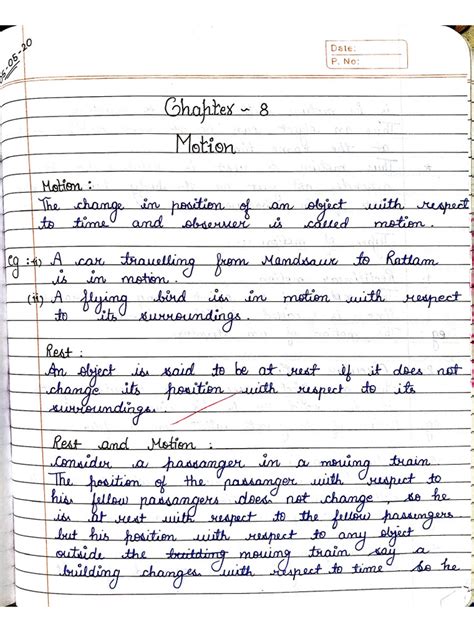 05-05-20
Date:
P. No:
Chapter - 8
Motion
Motion :
The change in position of an object with respect
to time and observer is called motion.
eg :-(i) A car travelling from Mandsaur to Ratlam
is in motion.
(ii) A flying bird is in motion with respect
to its surroundings.
Rest :
An object is said to be at rest if it does not
change its position with respect to its
surroundings.
Rest and Motion :
Consider a passanger in a moving train
The position of the passanger with respect to
his fellow passangers does not change, so he
is at rest with respect to the fellow passengers
but his position with respect to any object
outside the building moving train say a
building changes with respect to time so he